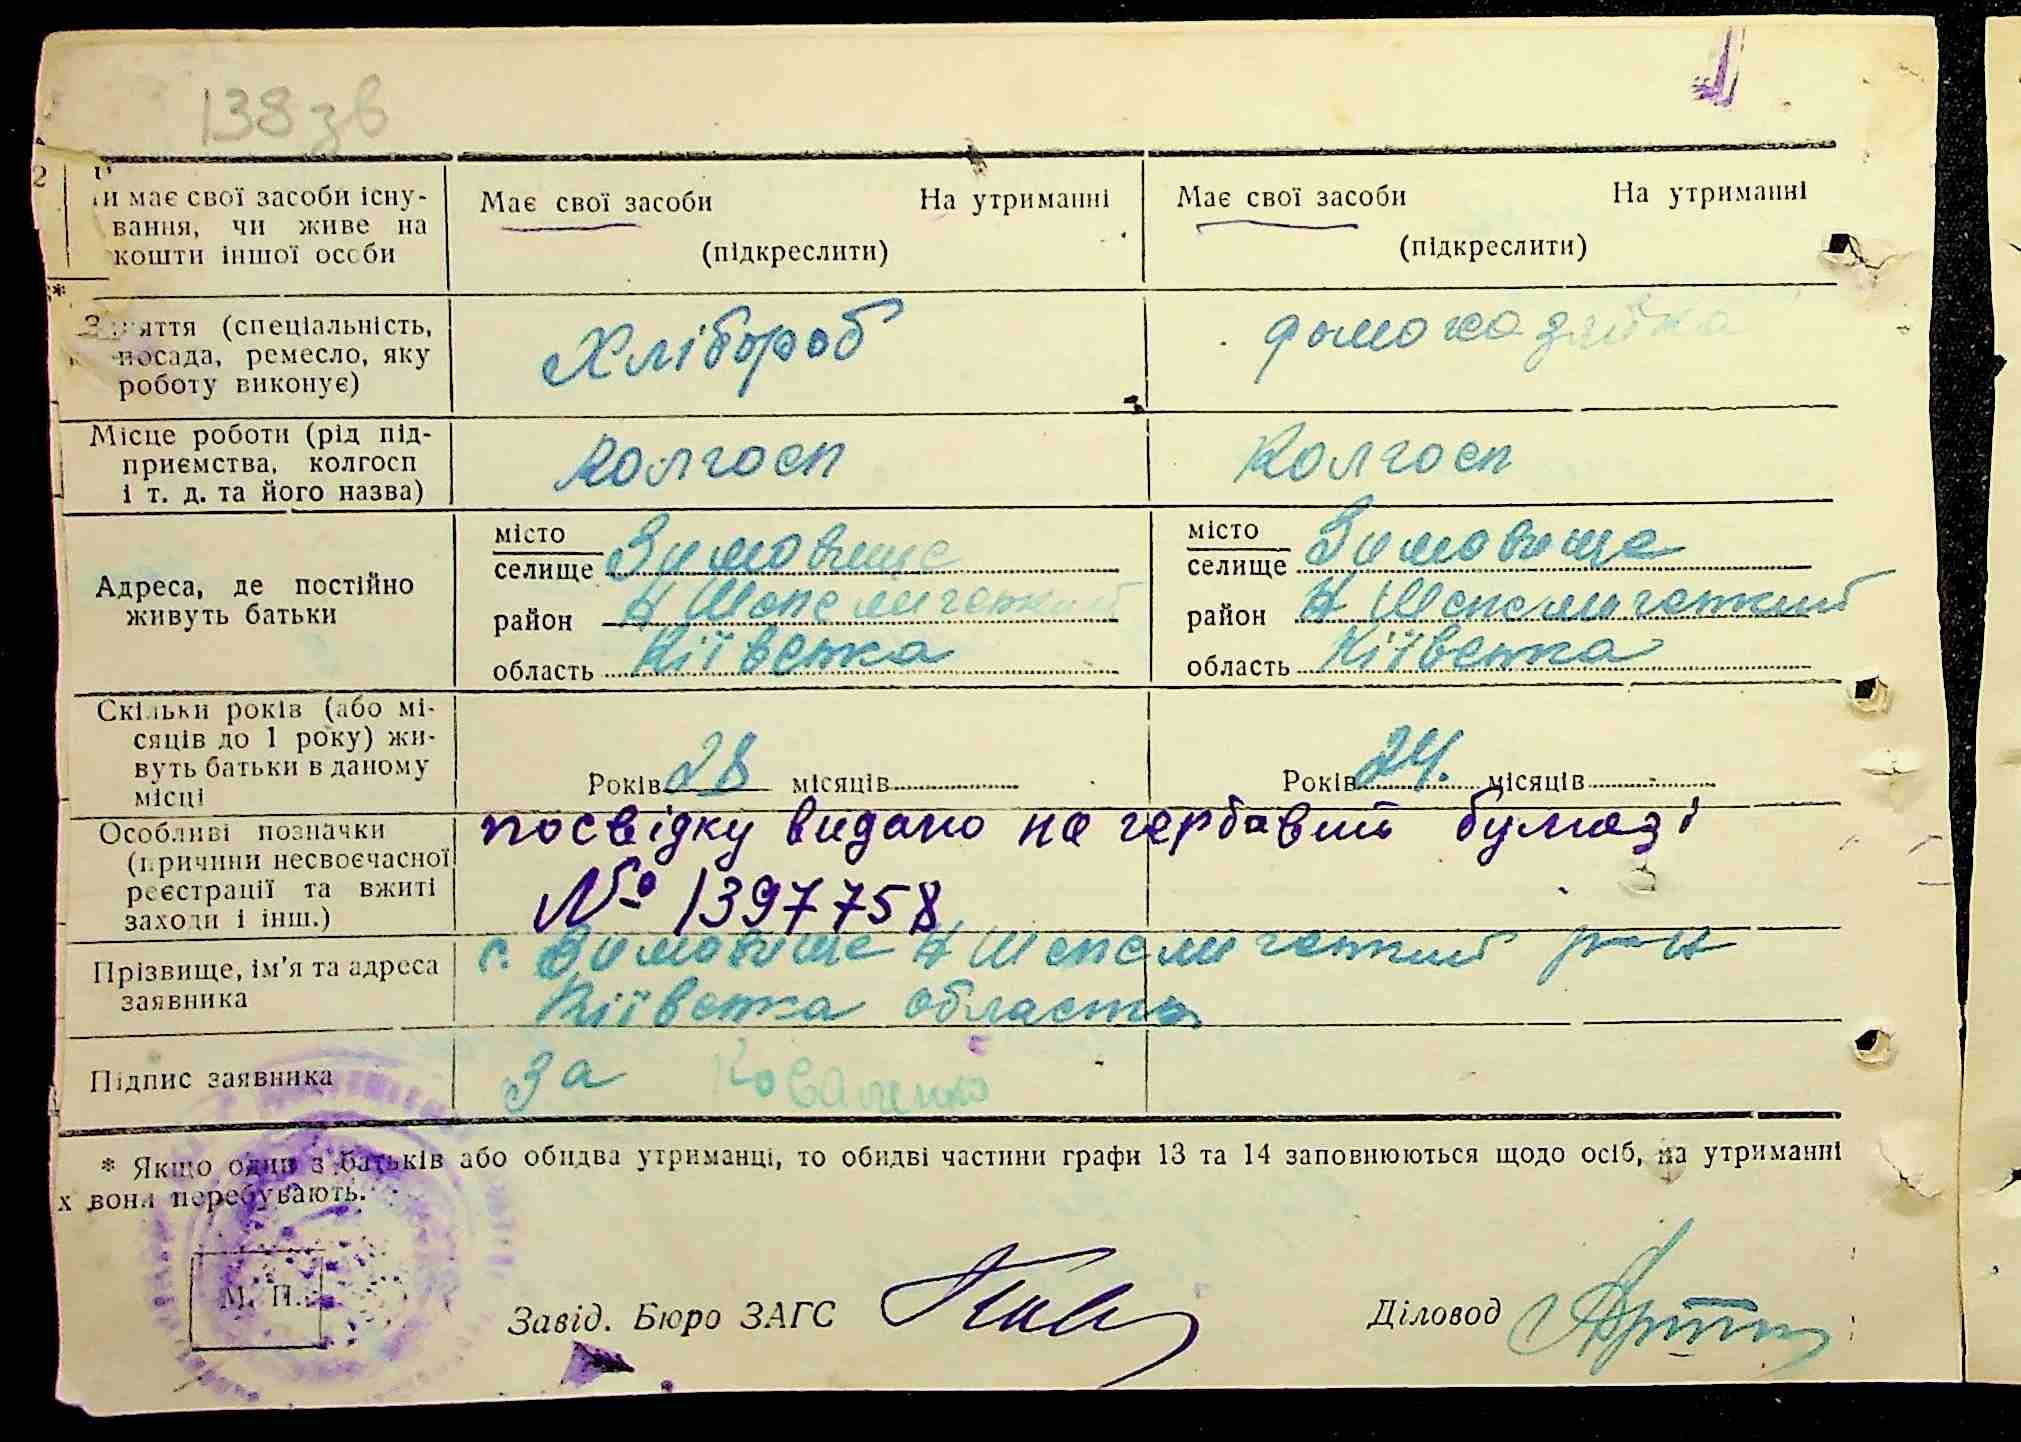 138 зв
2
и має свої засоби існу-
вання, чи живе на
кошти іншої особи
Має свої засоби На утриманні
(підкреслити)
Має свої засоби На утриманні
(підкреслити)
*
Заняття (спеціальність,
посада, ремесло, яку
роботу виконує)
Хлібороб
домохазяйка
Місце роботи (рід під-
приємства, колгосп
і т. д. та його назва)
Колгосп
Колгосп
Адреса, де постійно
живуть батьки
місто
селище Зимовище
район Н Шепелический
область Київська
місто
селище Зимовище
район Н Шепелический
область Київська
Скільки років (або мі-
сяців до 1 року) жи-
вуть батьки в даному
місці
Років 28 місяців
Років 24. місяців
Особливі позначки
(причини несвоєчасної
реєстрації та вжиті
заходи і інш.)
посвідку видано на гербавий бумазі
№ 1397758
Прізвище, ім'я та адреса
заявника
с. Зимовище Н Шепелический р-н
Київська область
Підпис заявника
За Коваленко
* Якщо один з батьків або обидва утриманці, то обидві частини графи 13 та 14 заповнюються щодо осіб, на утриманні
х вони перебувають.
М. П.
Завід. Бюро ЗАГС
Діловод